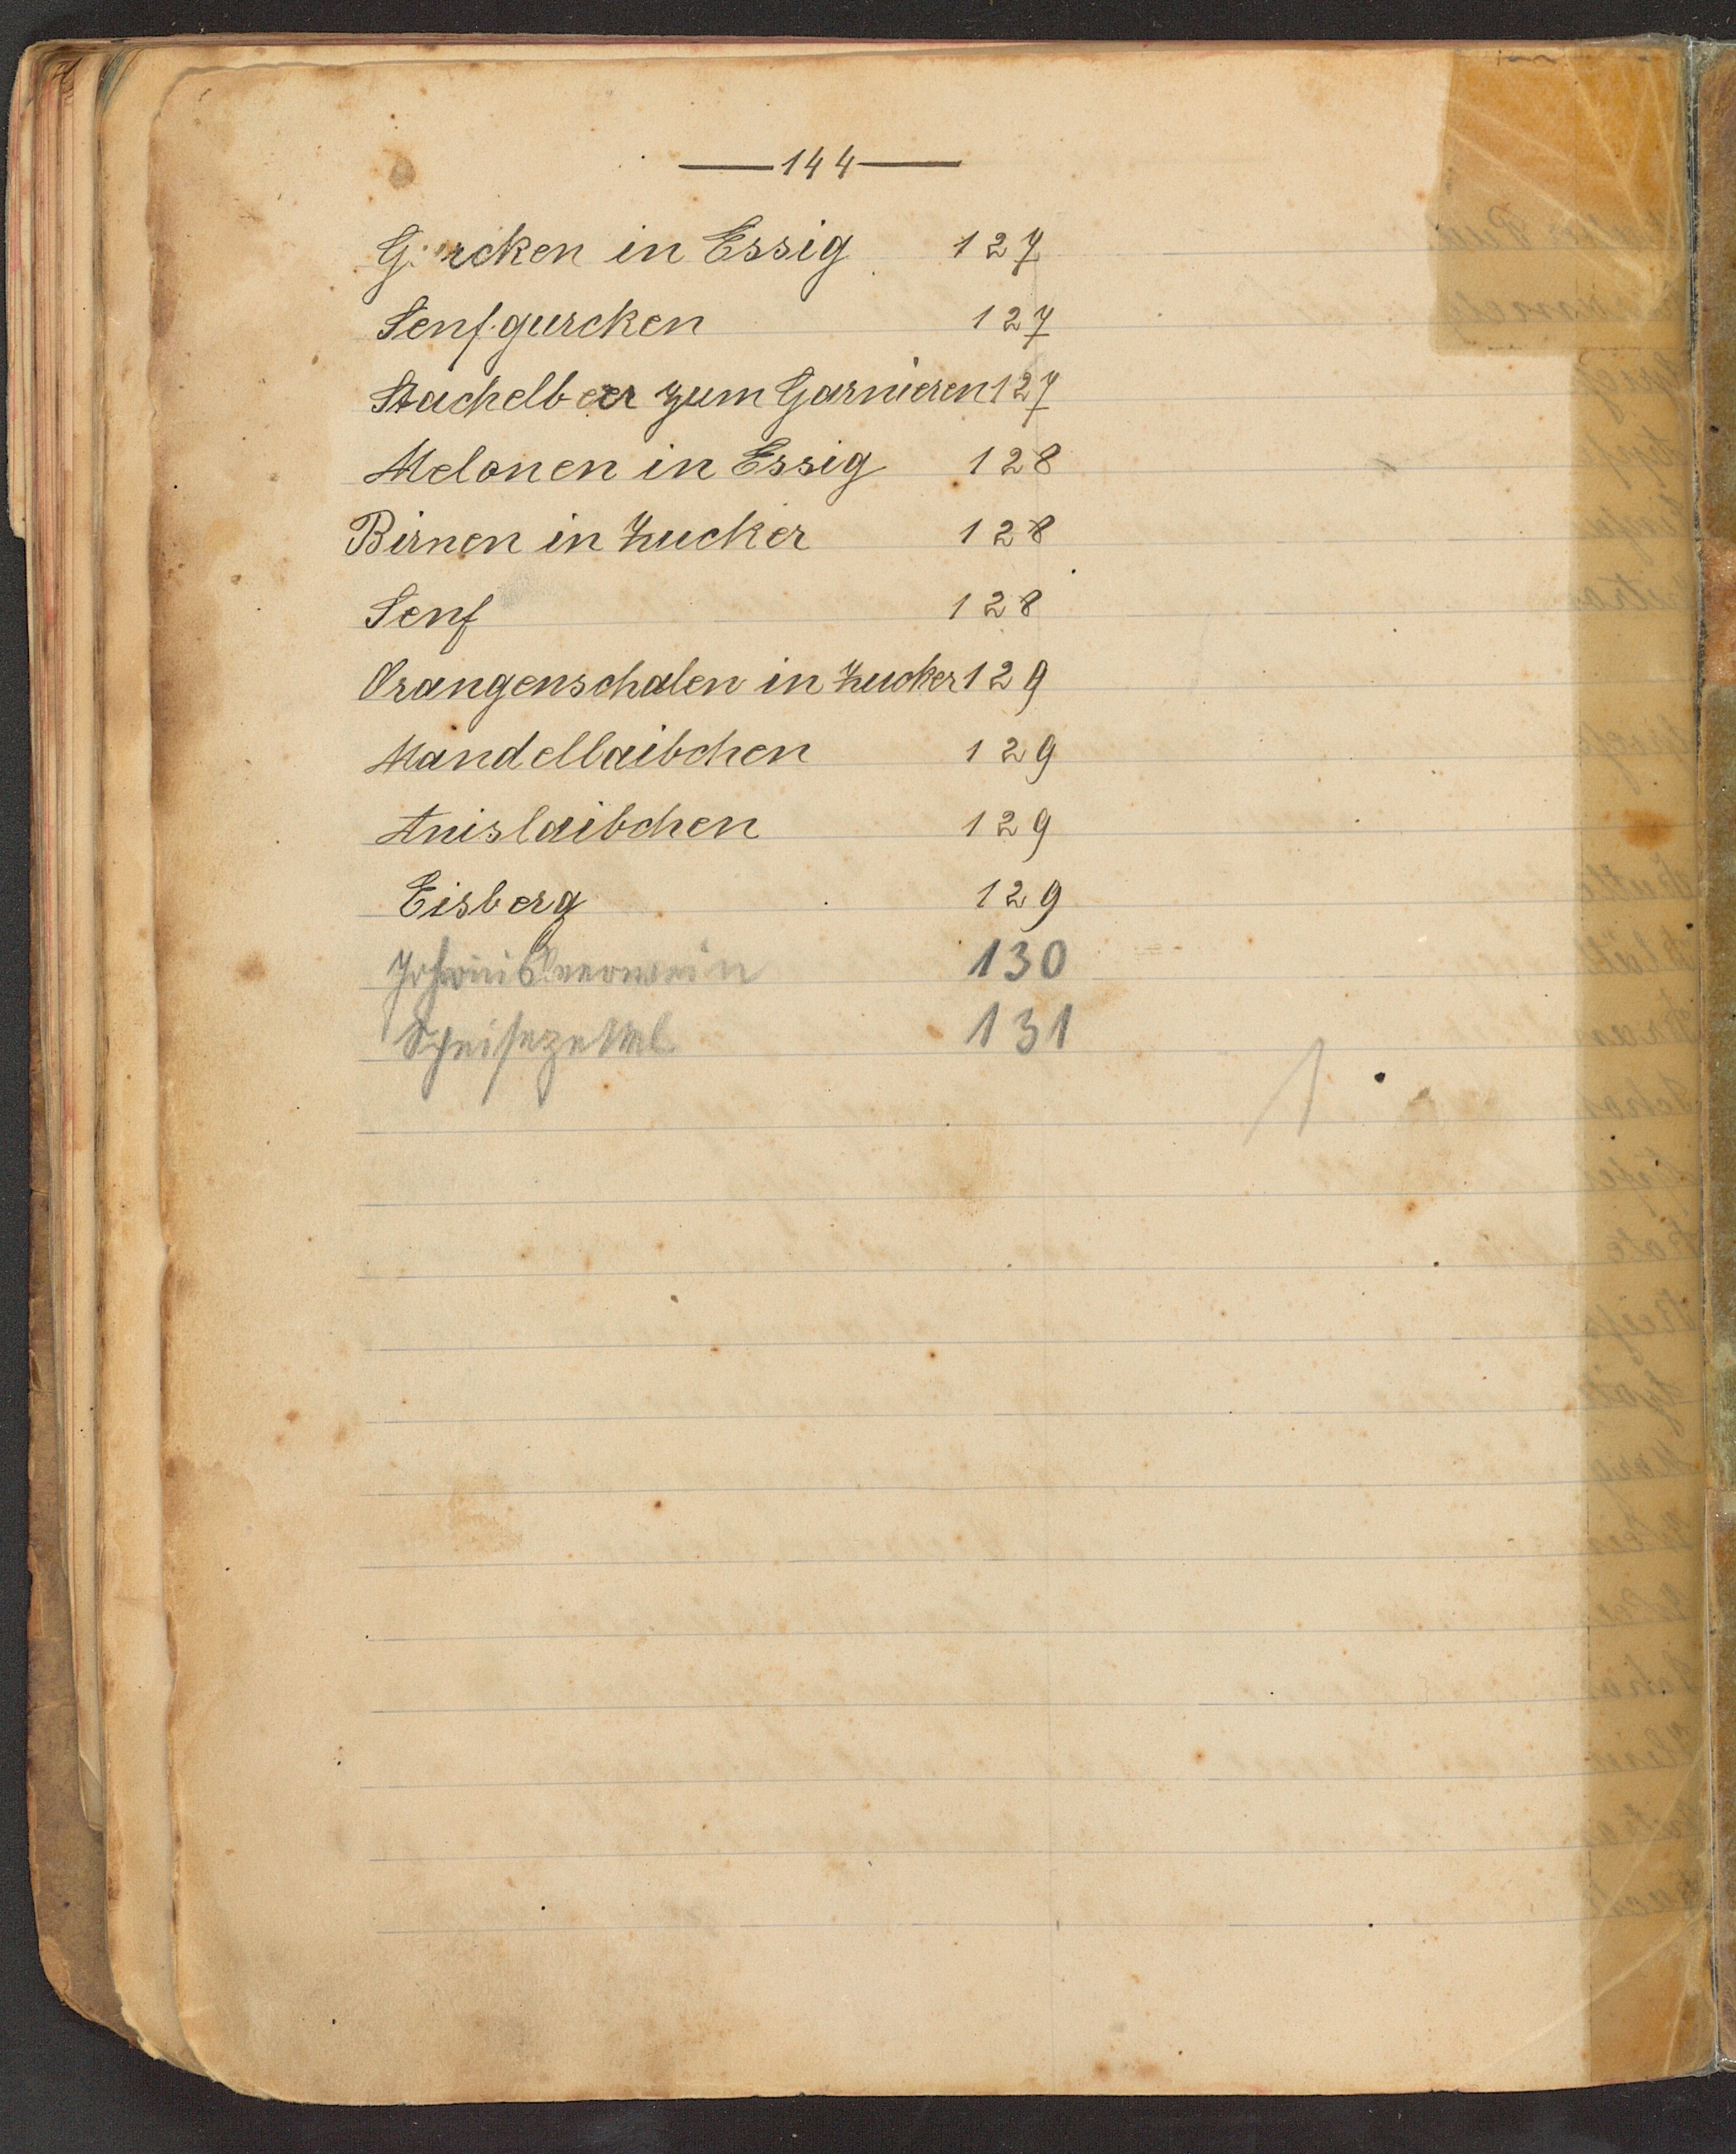 —144—
Gurcken in Essig 127
Senfgurcken 127
Stachelbeer zum Garnieren 127
Melonen in Essig 128
Birnen in Zucker 128
Senf 128
Orangenschalen in Zucker 129
Mandellaibchen 129
Anislaibchen 129
Eisberg 129
Johannisbeerwein 130
Speisezettel 131